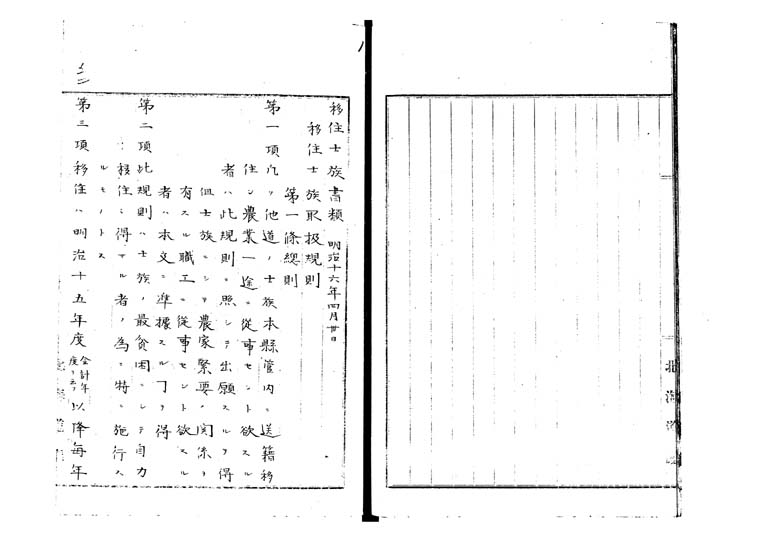 移住士族書類 明治十六年四月廿日
移住士族取扱規則
第一條總則
第一項凡ソ他道ノ士族本縣管内ニ送籍移
住シ農業一途ニ從事セント欲スル
者ハ此規則ニ照シテ出願スルヲ得
但士族ニシテ農家緊要ノ関係ヲ
有スル職工ニ從事セント欲スル
者ハ本文ニ準據スルヿヲ得
第二項此規則ハ士族ノ最貧困ニシテ自力
移住シ得サル者ノ為ニ特ニ施行ス
ルモノトス
第三項移住ハ明治十五年度會計年度ヲ云フ以降毎年
北海道